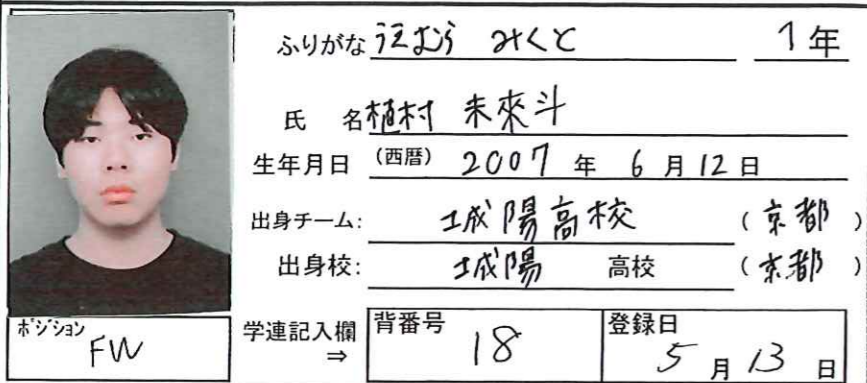 ふりがな うえむら みくと 1年
氏 名 植村 未來斗
生年月日 (西暦) 2007 年 6 月 12 日
出身チーム: 城陽高校 (京都)
出身校: 城陽 高校 (京都)
ポジション FW
学連記入欄 ⇒ 背番号 18 登録日 5 月 13 日